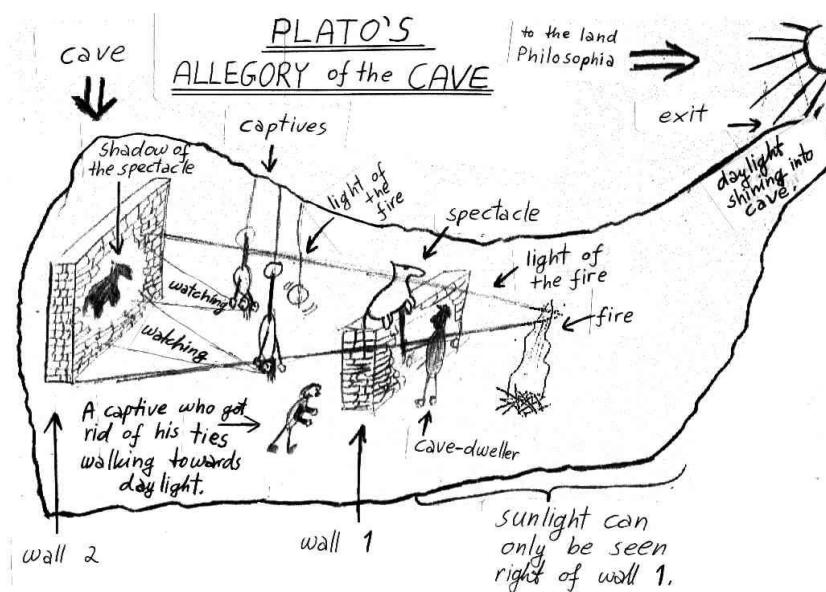 PLATO'S
ALLEGORY of the CAVE
to the land
Philosophia
cave
exit
captives
shadow of
the spectacle
light of
the
fire
daylight
shining into
cave.
spectacle
light of
the fire
fire
watching
watching
A captive who got
rid of his ties
walking towards
daylight.
cave-dweller
wall 2
wall 1
sunlight can
only be seen
right of wall 1.